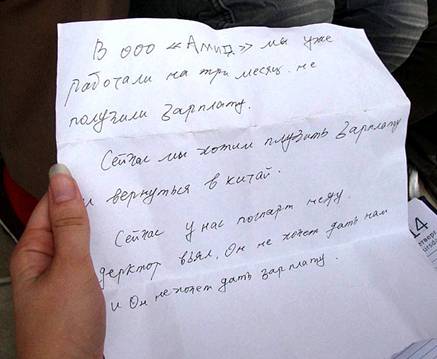 В ООО «Амид» мы уже
работали на три месяц. не
получили зарплату.
Сейчас мы хотим плузить зарплату
и вернуться в китай.
Сейчас у нас поспарт нету.
дерктор взял. Он не хочет дать нам
и Он не хочет дать зарплату.
14